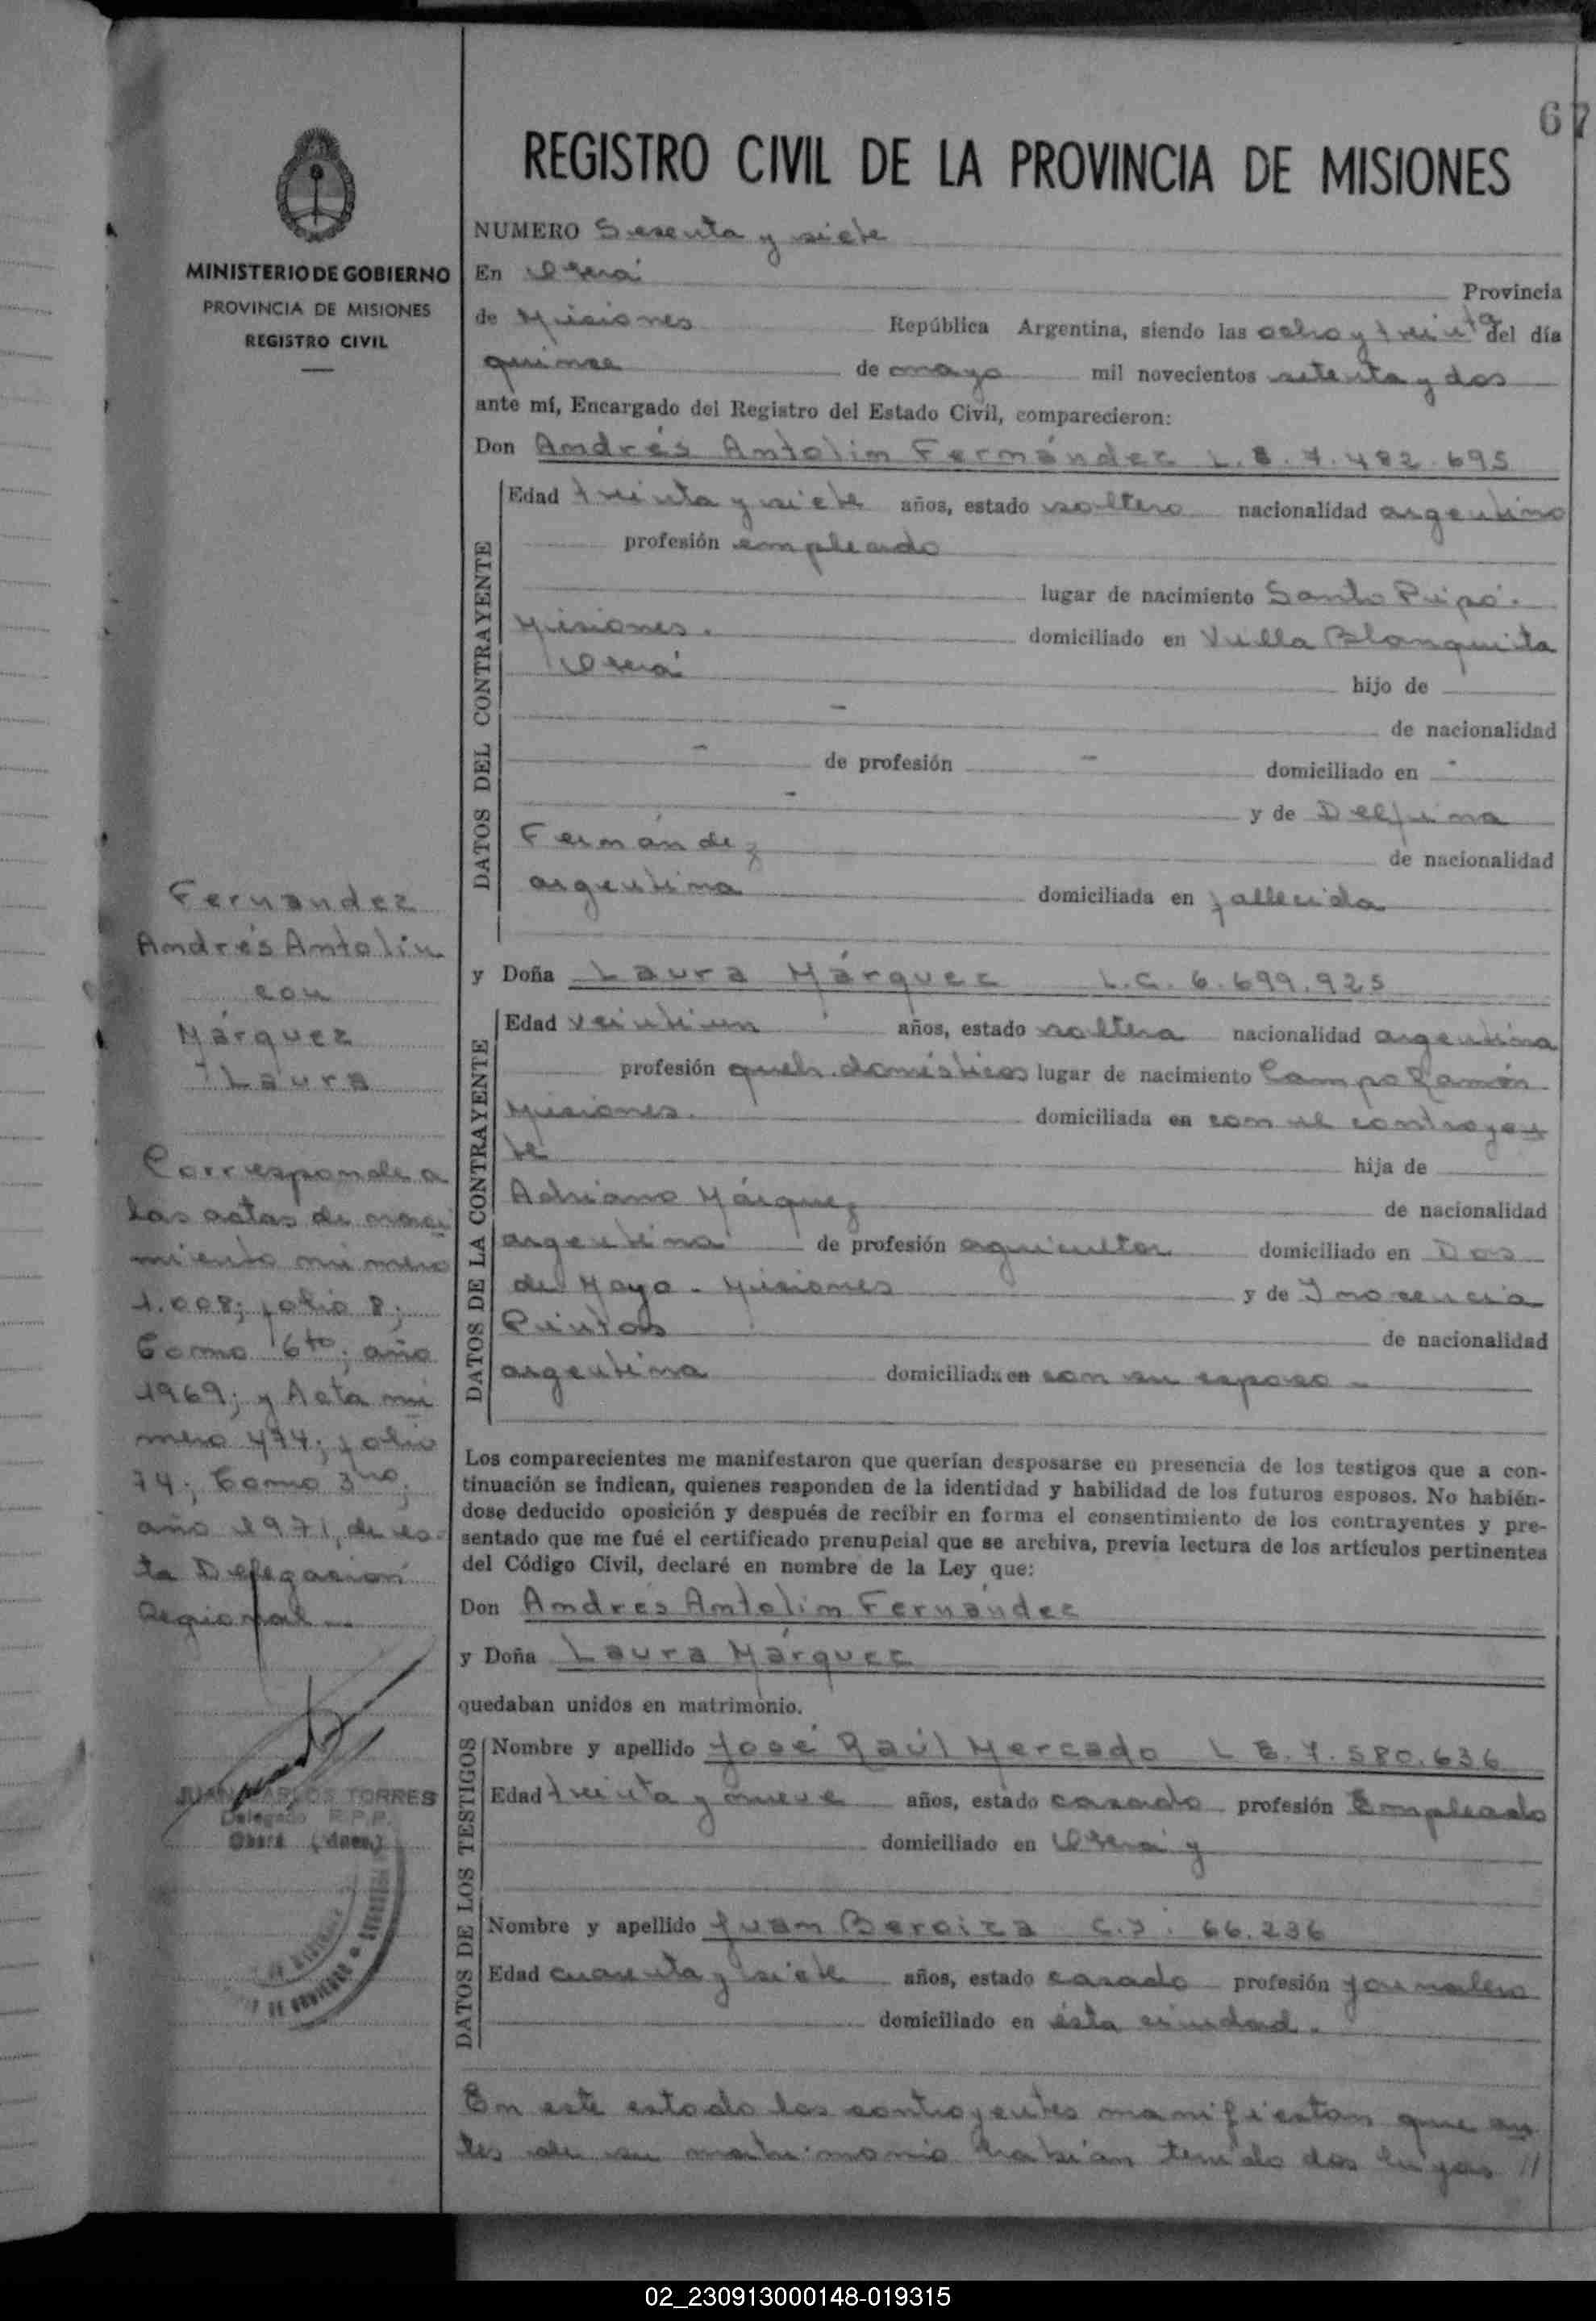 67
REGISTRO CIVIL DE LA PROVINCIA DE MISIONES
MINISTERIO DE GOBIERNO
PROVINCIA DE MISIONES
REGISTRO CIVIL
Fernandez
Andrés Antolin
con
Márquez
Laura
Corresponde a
las actas de naci
miento numero
1.008; folio 8;
Tomo 6to; año
1969; y Acta nu
mero 474; folio
74; Tomo 3ro;
año 1971, de es-
ta Delegación
Regional
JUAN CARLOS TORRES
Delegado R.P.P.
Oberá (Mnes.)
NUMERO Sesenta y siete
En Oberá Provincia
de Misiones República Argentina, siendo las ocho y treinta del día
quince de mayo mil novecientos setenta y dos
ante mí, Encargado del Registro del Estado Civil, comparecieron:
Don Andrés Antolin Fernández L.E. 7.482.695
DATOS DEL CONTRAYENTE
Edad treinta y siete años, estado soltero nacionalidad argentino
profesión empleado
lugar de nacimiento Santo Pipó.
Misiones. domiciliado en Villa Blanquita
Oberá hijo de
- de nacionalidad
- de profesión - domiciliado en -
- y de Delfina
Fernández de nacionalidad
argentina domiciliada en fallecida
y Doña Laura Márquez L.C. 6.699.925
DATOS DE LA CONTRAYENTE
Edad veintiun años, estado soltera nacionalidad argentina
profesión queh. domésticos lugar de nacimiento Campo Ramón
Misiones. domiciliada en con el contrayen
te hija de
Adriano Márquez de nacionalidad
argentina de profesión agricultor domiciliado en Dos
de Mayo - Misiones y de Inocencia
Pintos de nacionalidad
argentina domiciliada en con su esposo -
Los comparecientes me manifestaron que querían desposarse en presencia de los testigos que a con-
tinuación se indican, quienes responden de la identidad y habilidad de los futuros esposos. No habién-
dose deducido oposición y después de recibir en forma el consentimiento de los contrayentes y pre-
sentado que me fué el certificado prenupcial que se archiva, previa lectura de los artículos pertinentes
del Código Civil, declaré en nombre de la Ley que:
Don Andrés Antolin Fernández
y Doña Laura Márquez
quedaban unidos en matrimonio.
DATOS DE LOS TESTIGOS
Nombre y apellido José Raúl Mercado L E. 7.580.636
Edad treinta y nueve años, estado casado profesión Empleado
domiciliado en Oberá y
Nombre y apellido Juan Beroiza C.I. 66.236
Edad cuarenta y siete años, estado casado profesión jornalero
domiciliado en ésta ciudad.
En este estado los contrayentes manifiestan que an
tes de su matrimonio habían tenido dos hijos //
02_230913000148-019315